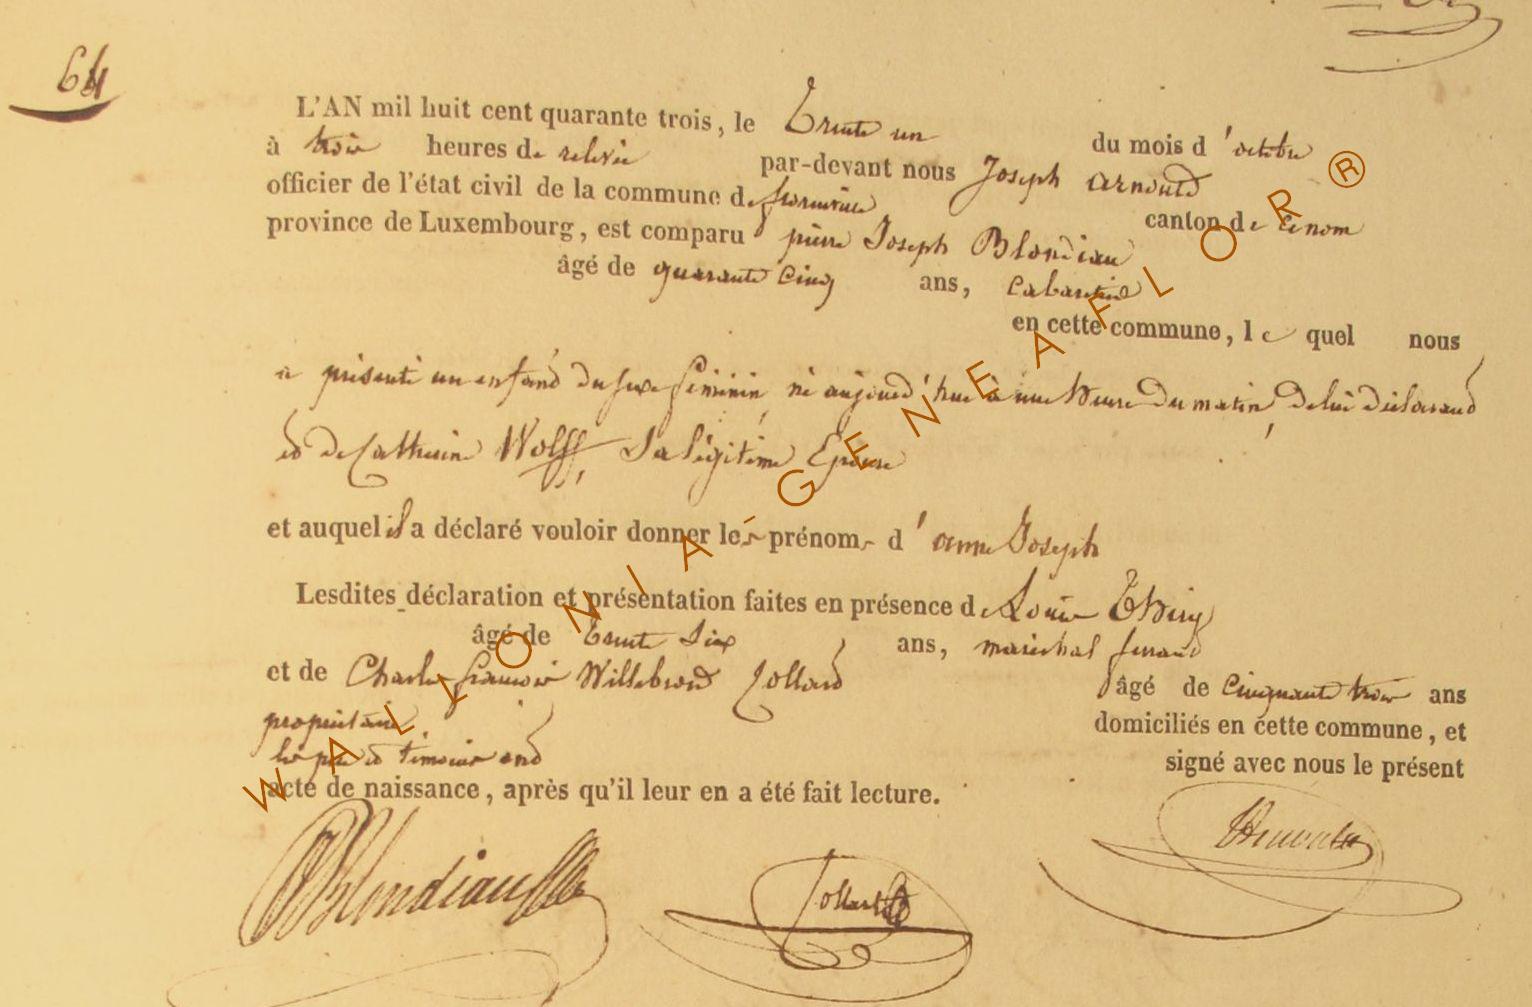 64
L'AN mil huit cent quarante trois, le Trente un du mois d'octobre
à trois heures de relevée par-devant nous Joseph Arnould
officier de l'état civil de la commune de canton de
province de Luxembourg, est comparu pierre Joseph Blondiau
âgé de quarante Cinq ans, Cabaretier
en cette commune, le quel nous
a présenté un enfand du sexe féminin né aujourd'hui à une heure du matin, de lui déclarand
et de Catherine Wolff, Sa légitime Epouse
et auquel il a déclaré vouloir donner les prénoms d'anne Joseph
Lesdites déclaration et présentation faites en présence de Louis Thiry
âgé de Trente Six ans, maréchal ferrand
et de Charles françois Willebrord Collard âgé de Cinquante trois ans
propriétaire domiciliés en cette commune, et
les père et témoins ond signé avec nous le présent
acte de naissance, après qu'il leur en a été fait lecture.
Blondiau Collard
WALLONIA-GENEAFLOR®